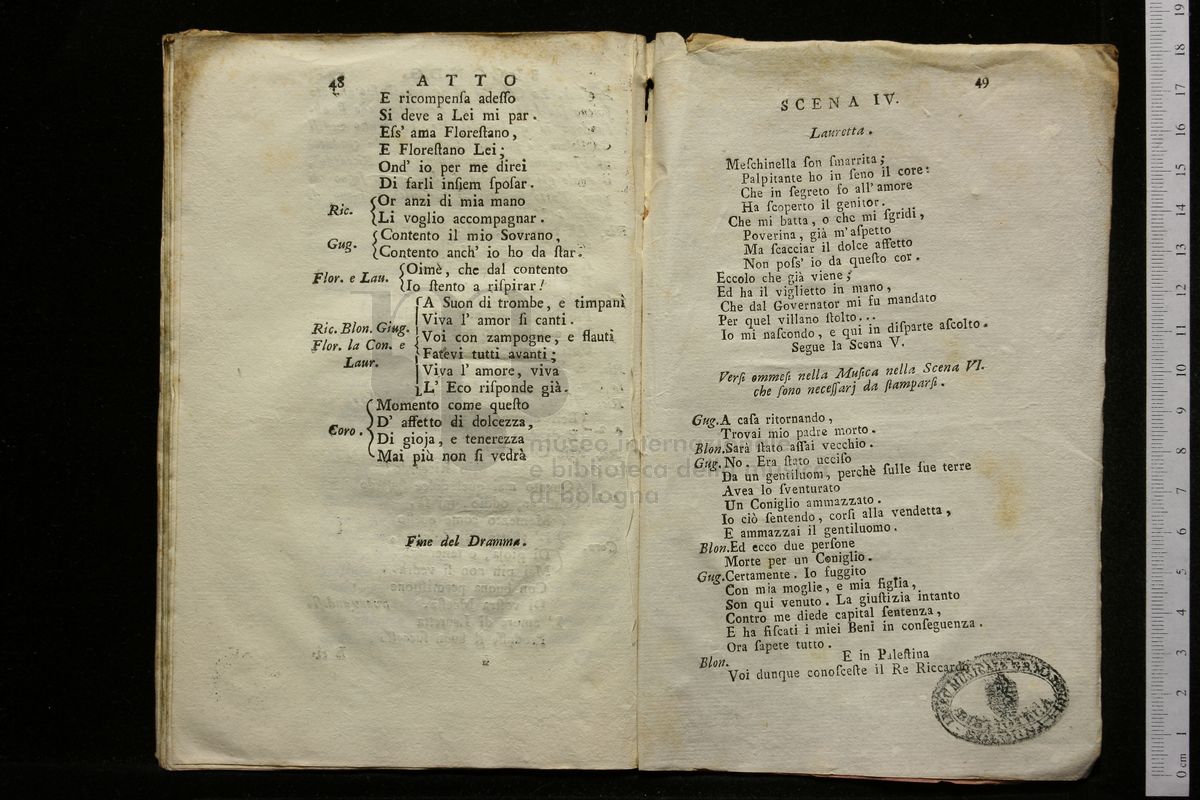 48 ATTO
E ricompenſa adeſſo
Si deve a Lei mi par.
Eſs' ama Floreſtano,
E Floreſtano Lei;
Ond' io per me direi
Di farli inſiem ſpoſar.
Ric. Or anzi di mia mano
Li voglio accompagnar.
Gug. Contento il mio Sovrano,
Contento anch' io ho da ſtar.
Flor. e Lau. Oimè, che dal contento
Io ſtento a riſpirar!
Ric. Blon. Giug. Flor. la Con. e Laur. A Suon di trombe, e timpani
Viva l' amor ſi canti.
Voi con zampogne, e flauti
Fatevi tutti avanti;
Viva l' amore, viva
L' Eco riſponde già.
Coro. Momento come queſto
D' affetto di dolcezza,
Di gioja, e tenerezza
Mai più non ſi vedrà
Fine del Dramma.
49
SCENA IV.
Lauretta.
Meſchinella ſon ſmarrita;
Palpitante ho in ſeno il core:
Che in ſegreto ſo all' amore
Ha ſcoperto il genitor.
Che mi batta, o che mi ſgridi,
Poverina, già m'aſpetto
Ma ſcacciar il dolce affetto
Non poſs' io da queſto cor.
Eccolo che già viene;
Ed ha il viglietto in mano,
Che dal Governator mi fu mandato
Per quel villano ſtolto...
Io mi naſcondo, e qui in diſparte aſcolto.
Segue la Scena V.
Verſi ommeſi nella Muſica nella Scena VI.
che ſono neceſſarj da ſtamparſi.
Gug. A caſa ritornando,
Trovai mio padre morto.
Blon. Sarà ſtato aſſai vecchio.
Gug. No. Era ſtato ucciſo
Da un gentiluom, perchè ſulle ſue terre
Avea lo ſventurato
Un Coniglio ammazzato.
Io ciò ſentendo, corſi alla vendetta,
E ammazzai il gentiluomo.
Blon. Ed ecco due perſone
Morte per un Coniglio.
Gug. Certamente. Io fuggito
Con mia moglie, e mia figlia,
Son qui venuto. La giuſtizia intanto
Contro me diede capital ſentenza,
E ha fiſcati i miei Beni in conſeguenza.
Ora ſapete tutto.
Blon. E in Paleſtina
Voi dunque conoſceſte il Re Riccardo
museo internazionale
e biblioteca della musica
di bologna
LICEO MUSICALE G.B. MARTINI
BIBLIOTECA
BOLOGNA
0 cm 1 2 3 4 5 6 7 8 9 10 11 12 13 14 15 16 17 18 19